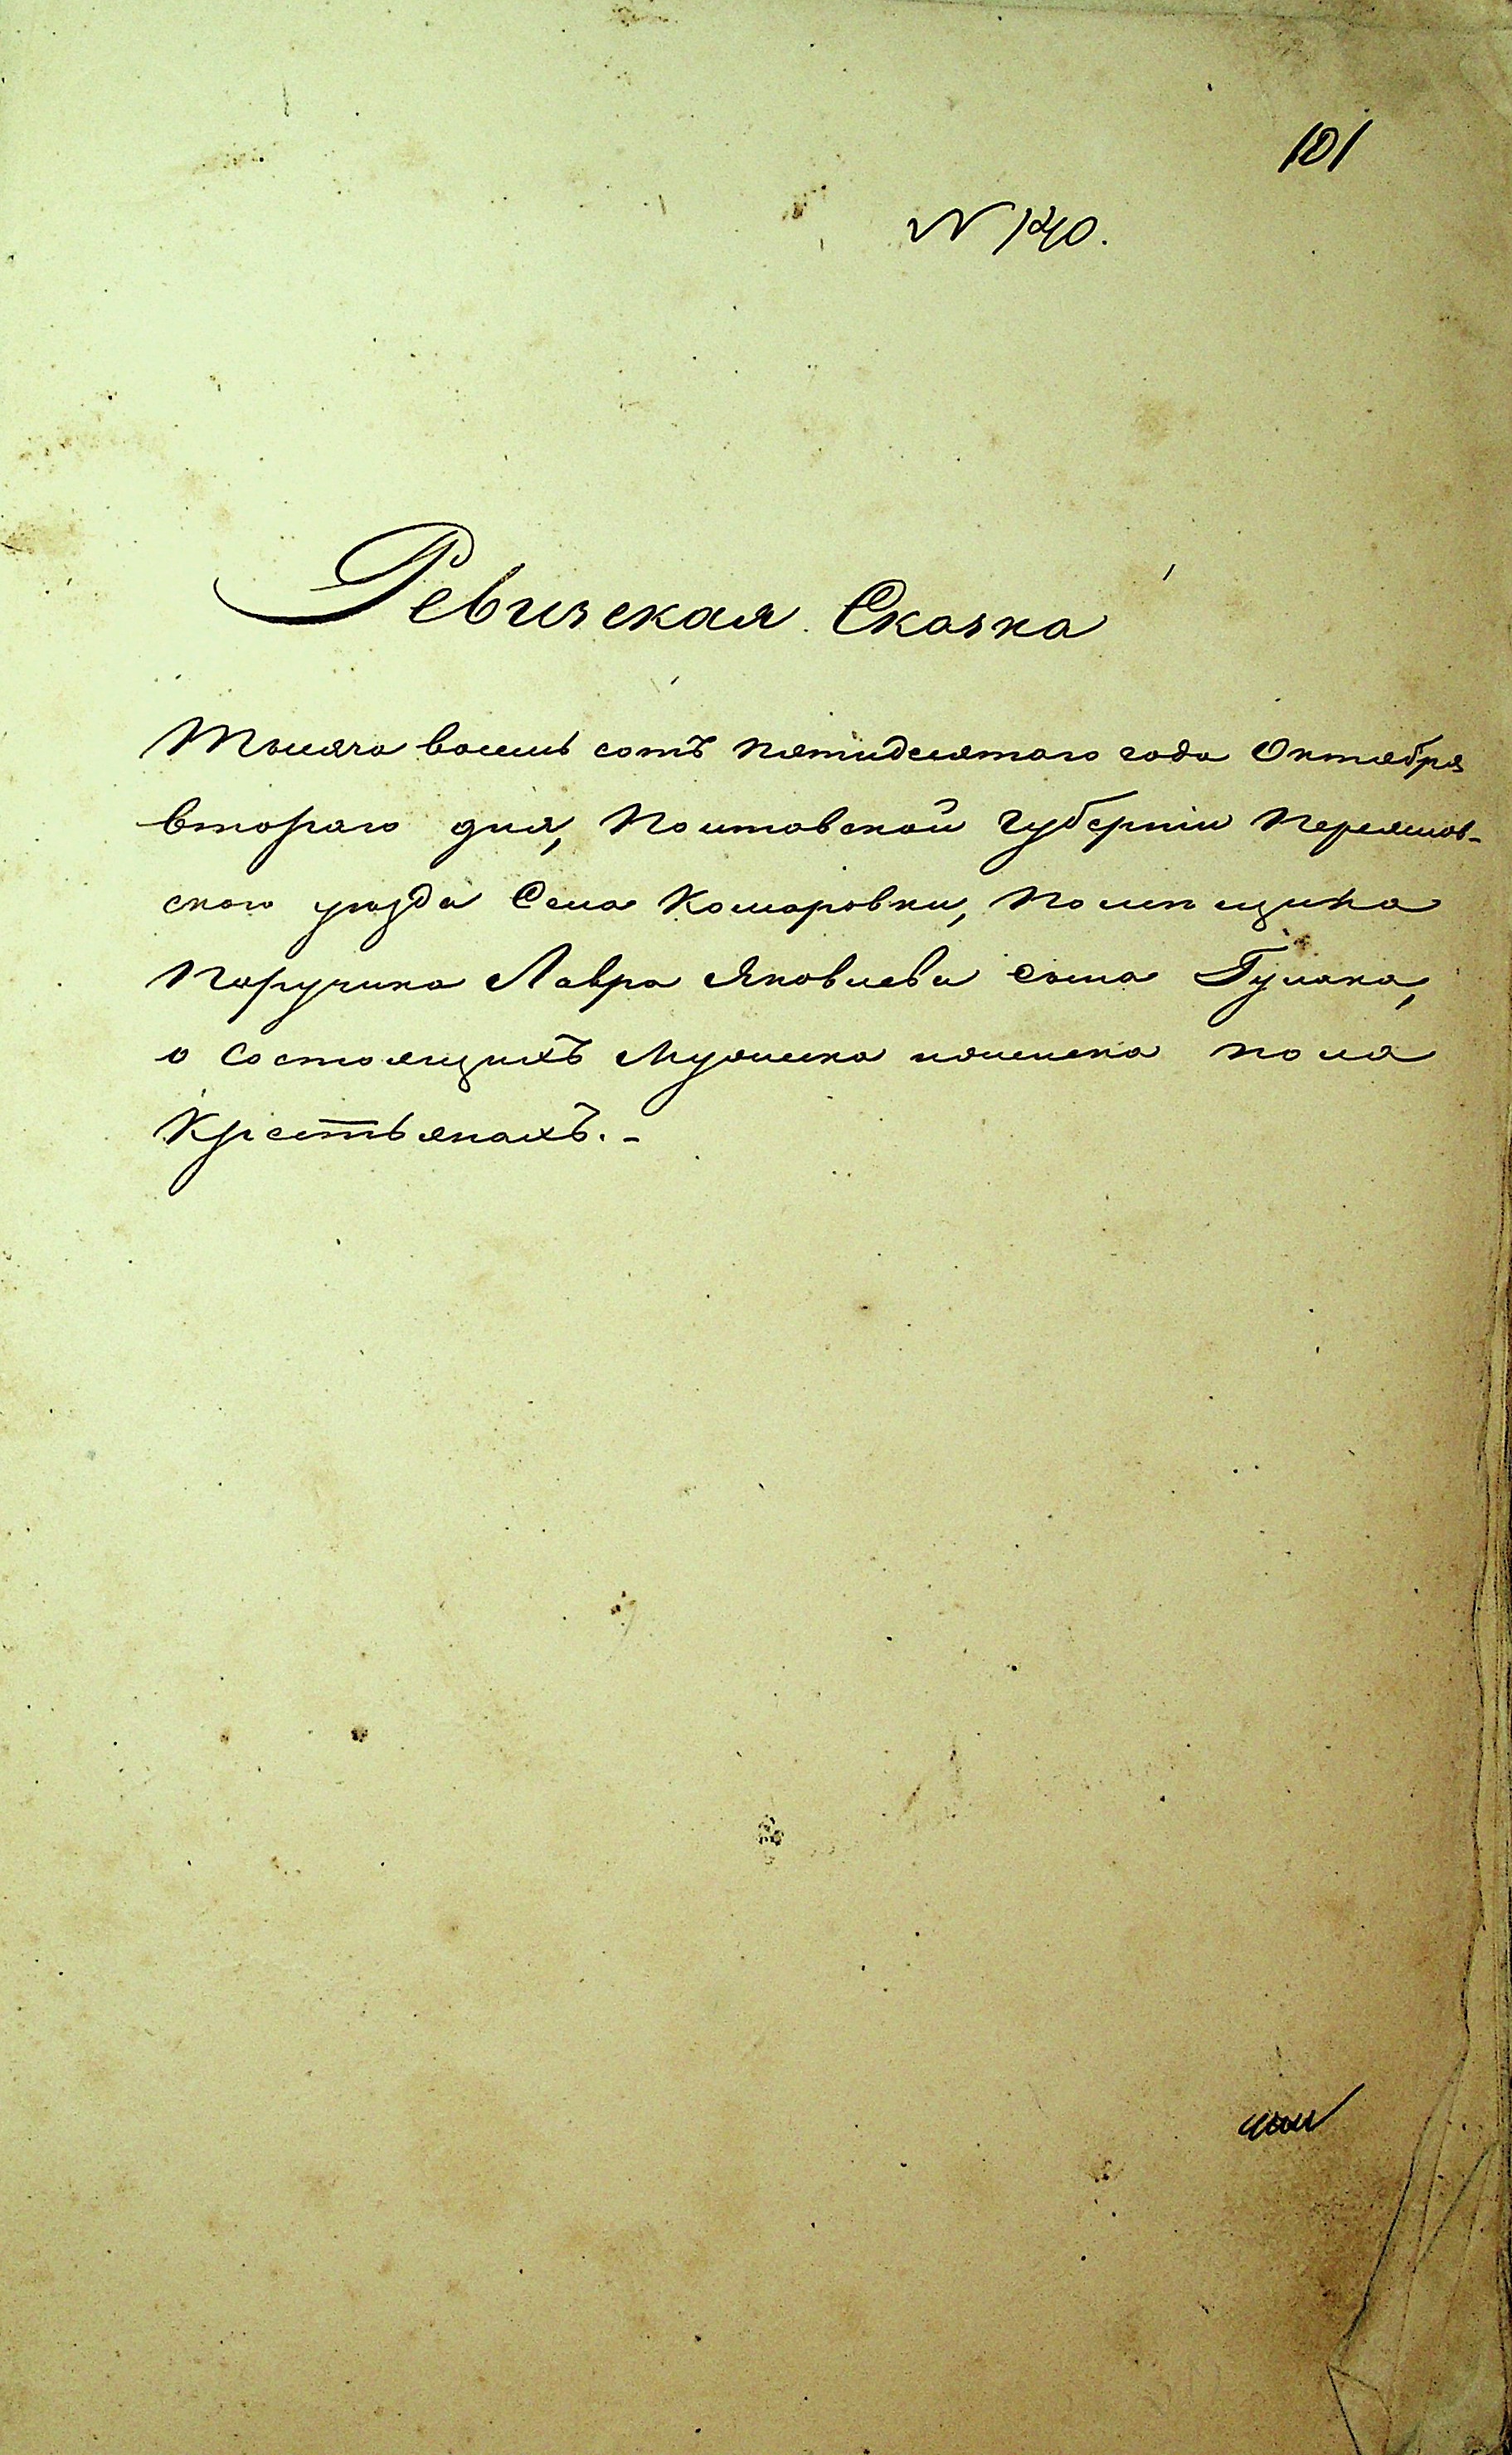 101
N 140.
Ревизская Сказка
Тысяча восемь сотъ пятидесятаго года Октября
втораго дня, Полтавской Губерніи Переяслав-
скаго уезда Села Комаровки, Помещика
Поручика Лавра Яковлева сына Гулака,
о состоящихъ Мужеска женска пола
Крестьянахъ.-